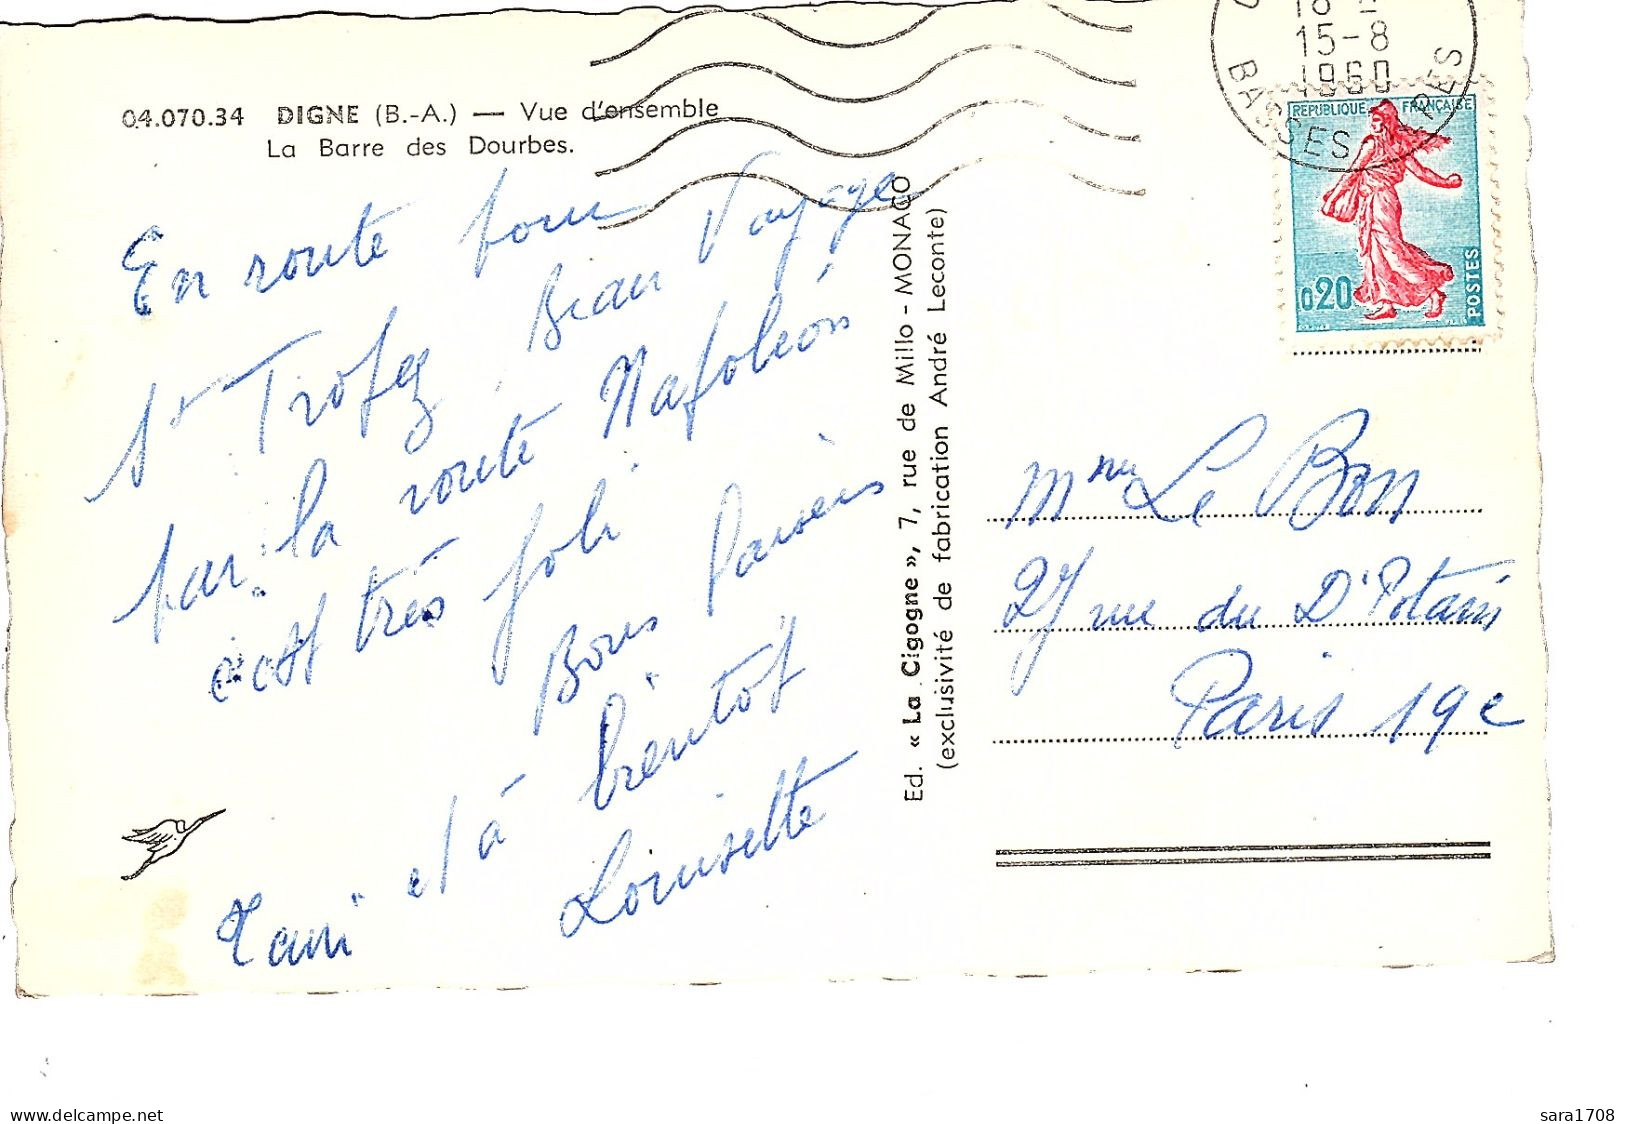 04.070.34 DIGNE (B.-A.) — Vue d'ensemble
La Barre des Dourbes.
En route pour
St Tropez, Beau Voyage
par la route Napoléon
c'est très joli
Bons
et à bientot
Louisette
Ed. « La Cigogne », 7, rue de Millo - MONACO
(exclusivité de fabrication André Leconte)
15-8
1960
BASSES
RÉPUBLIQUE FRANÇAISE
0,20
POSTES
Mme Le Bon
27 rue du Dr Potain
Paris 19e
delcampe.net
sara1708